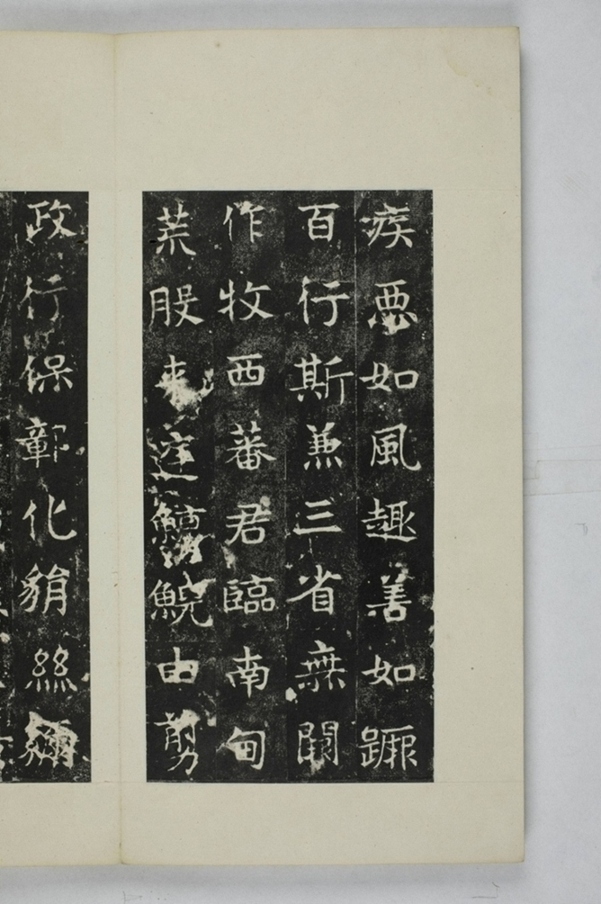 疾惡如風趣善如蹶
百行斯兼三省無闕
作牧西蕃君臨南甸
荒服来鯨鯢由剪
政行保鄣化絲